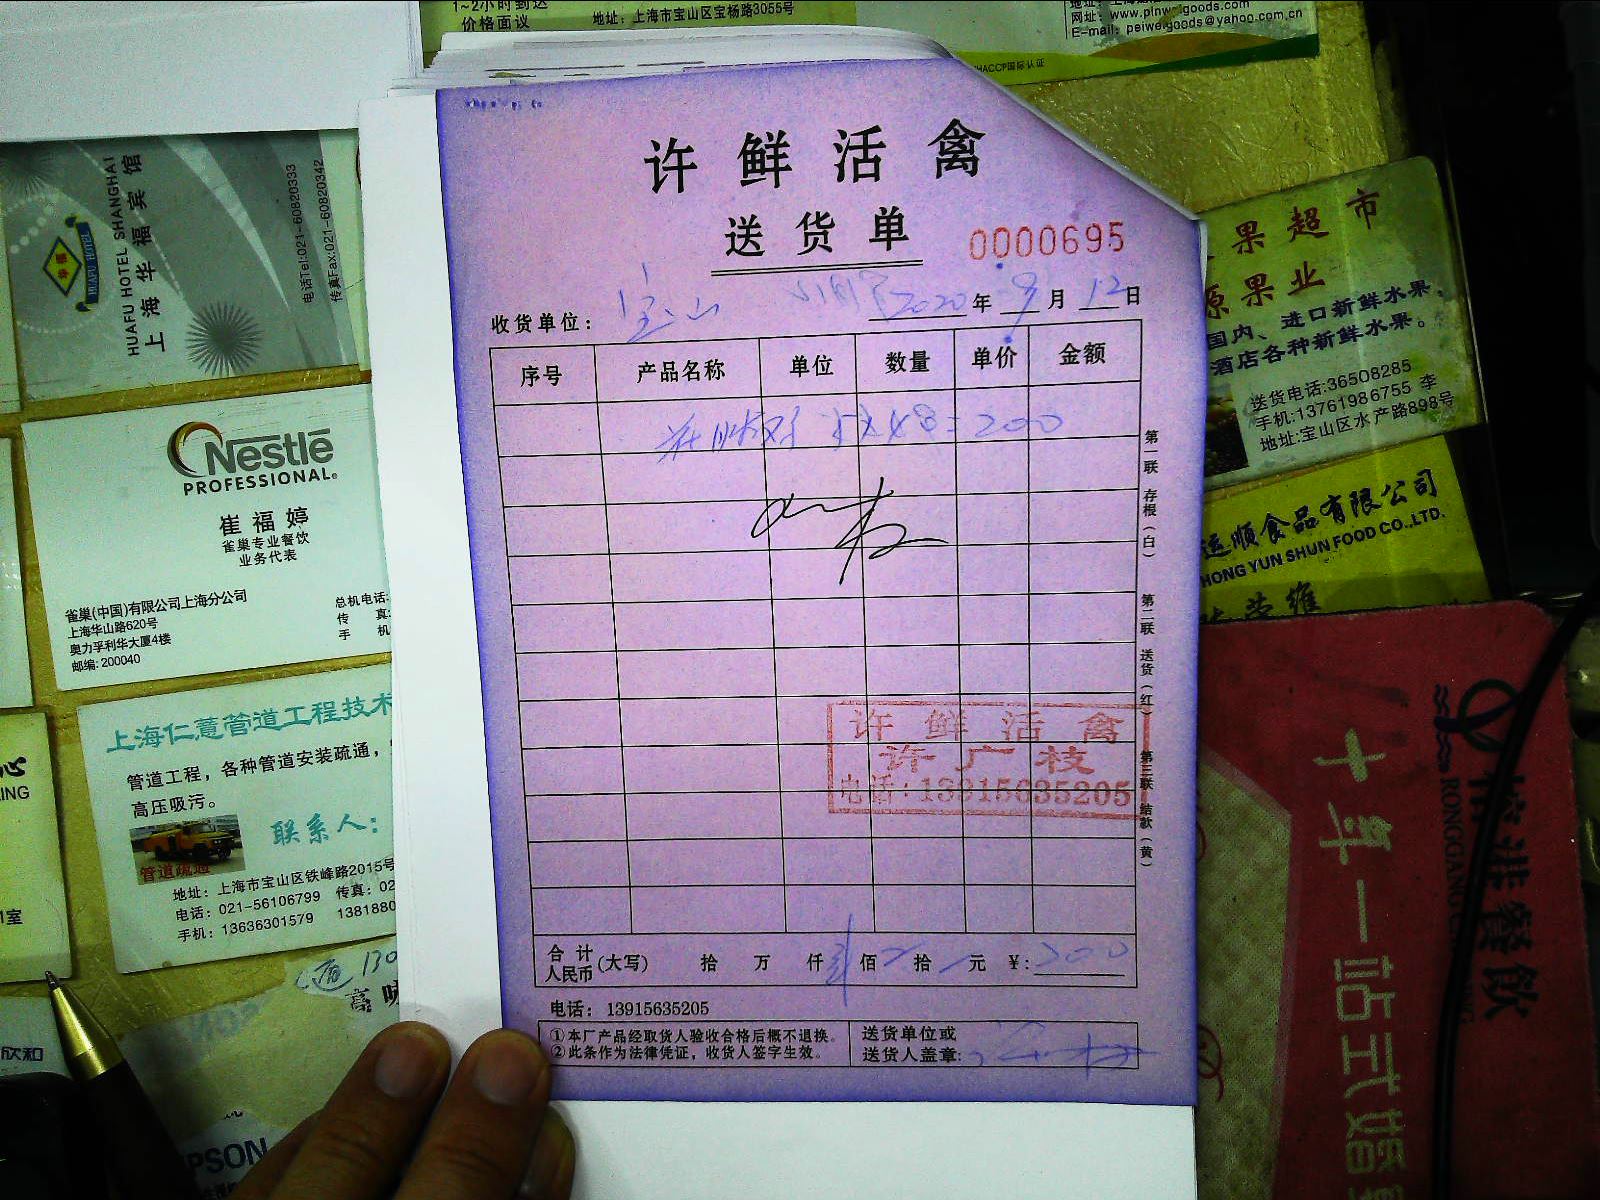 1~2小时到达
价格面议
地址：上海市宝山区宝杨路3055号
网址：www.pinweigoods.com
E-mail: peiweigoods@yahoo.com.cn
HACCP国际认证
HUAFU HOTEL
HUAFU HOTEL SHANGHAI
上海华福宾馆
电话Tel:021-60820333
传真Fax:021-60820342
Nestlé
PROFESSIONAL
崔福婷
雀巢专业餐饮
业务代表
雀巢(中国)有限公司上海分公司
上海华山路620号
奥力孚利华大厦4楼
邮编: 200040
总机电话:
传 真:
手 机
上海仁薏管道工程技术
管道工程，各种管道安装疏通，
高压吸污。
联系人：
管道疏通
地址：上海市宝山区铁峰路2015号
电话：021-56106799 传真：02
手机：13636301579 1381880
许鲜活禽
送货单
0000695
收货单位： 宝山 2020年 9月 12日
序号 产品名称 单位 数量 单价 金额
200
第一联 存根（白）
第二联 送货（红）
第三联 结款（黄）
许鲜活禽
许广枝
电话：13915635205
合计人民币(大写) 拾 万 仟 佰 拾 元 ¥: 200
电话：13915635205
①本厂产品经取货人验收合格后概不退换。
②此条作为法律凭证，收货人签字生效。
送货单位或
送货人盖章:
果超市
源果业
国内、进口新鲜水果，
酒店各种新鲜水果。
送货电话:36508285
手机:13761986755 李
地址:宝山区水产路898号
运顺食品有限公司
HONG YUN SHUN FOOD CO.,LTD.
荣维
RONGGANG
港餐饮
十年一站式婚
欣和
EPSON